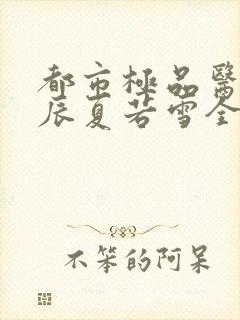 都市極品醫
辰夏若雪全
不笨的阿呆